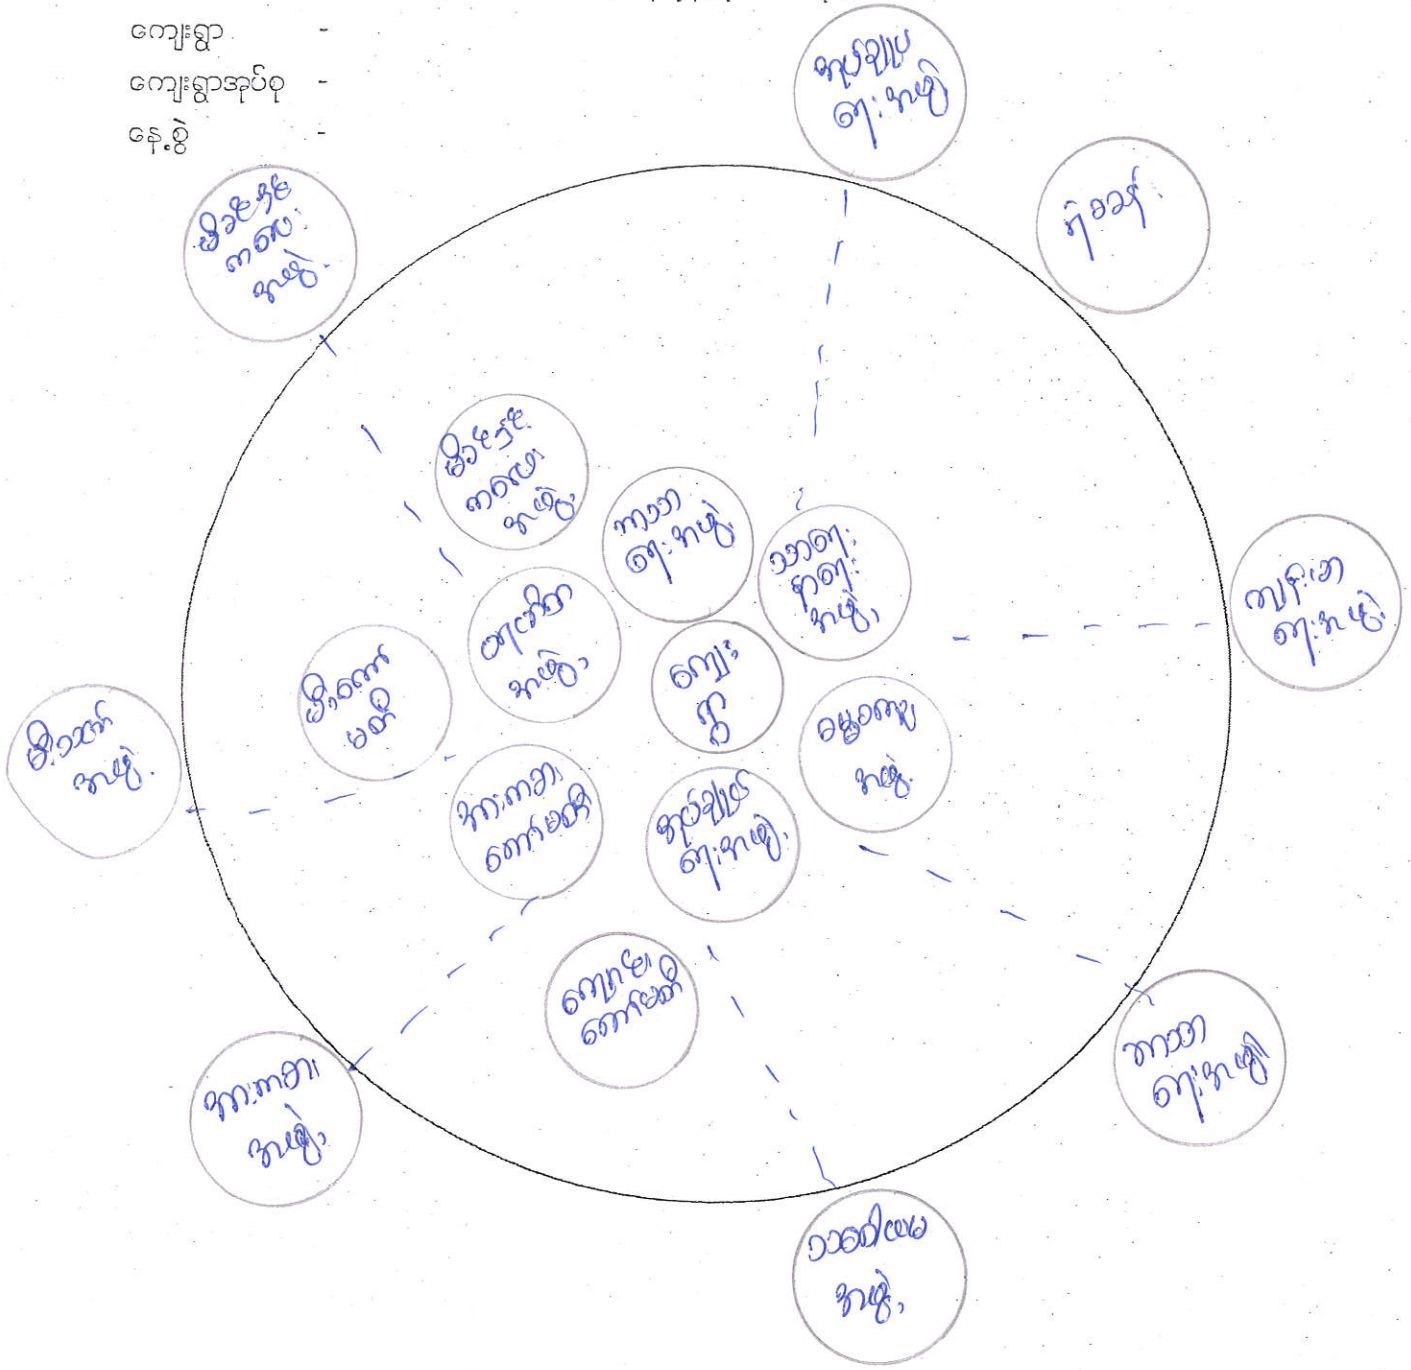 ကျေးရွာ -
ကျေးရွာအုပ်စု -
နေ့စွဲ -
အုပ်ချုပ်
ရေး အဖွဲ့
ရဲစခန်း
မိခင်နှင့်
ကလေး
အဖွဲ့
မိခင်နှင့်
ကလေး
အဖွဲ့
ဘာသာ
ရေး အဖွဲ့
သာရေး
နာရေး
အဖွဲ့
ကျန်းမာ
ရေး အဖွဲ့
အဖွဲ့
ကျေး
ရွာ
မီးကော်
မတီ
မီးသတ်
အဖွဲ့
ဓမ္မစကြာ
အဖွဲ့
အားကစား
ကော်မတီ
အုပ်ချုပ်
ရေး အဖွဲ့
ကျောင်း
ကော်မတီ
ဘာသာ
ရေး အဖွဲ့
အားကစား
အဖွဲ့
အဖွဲ့